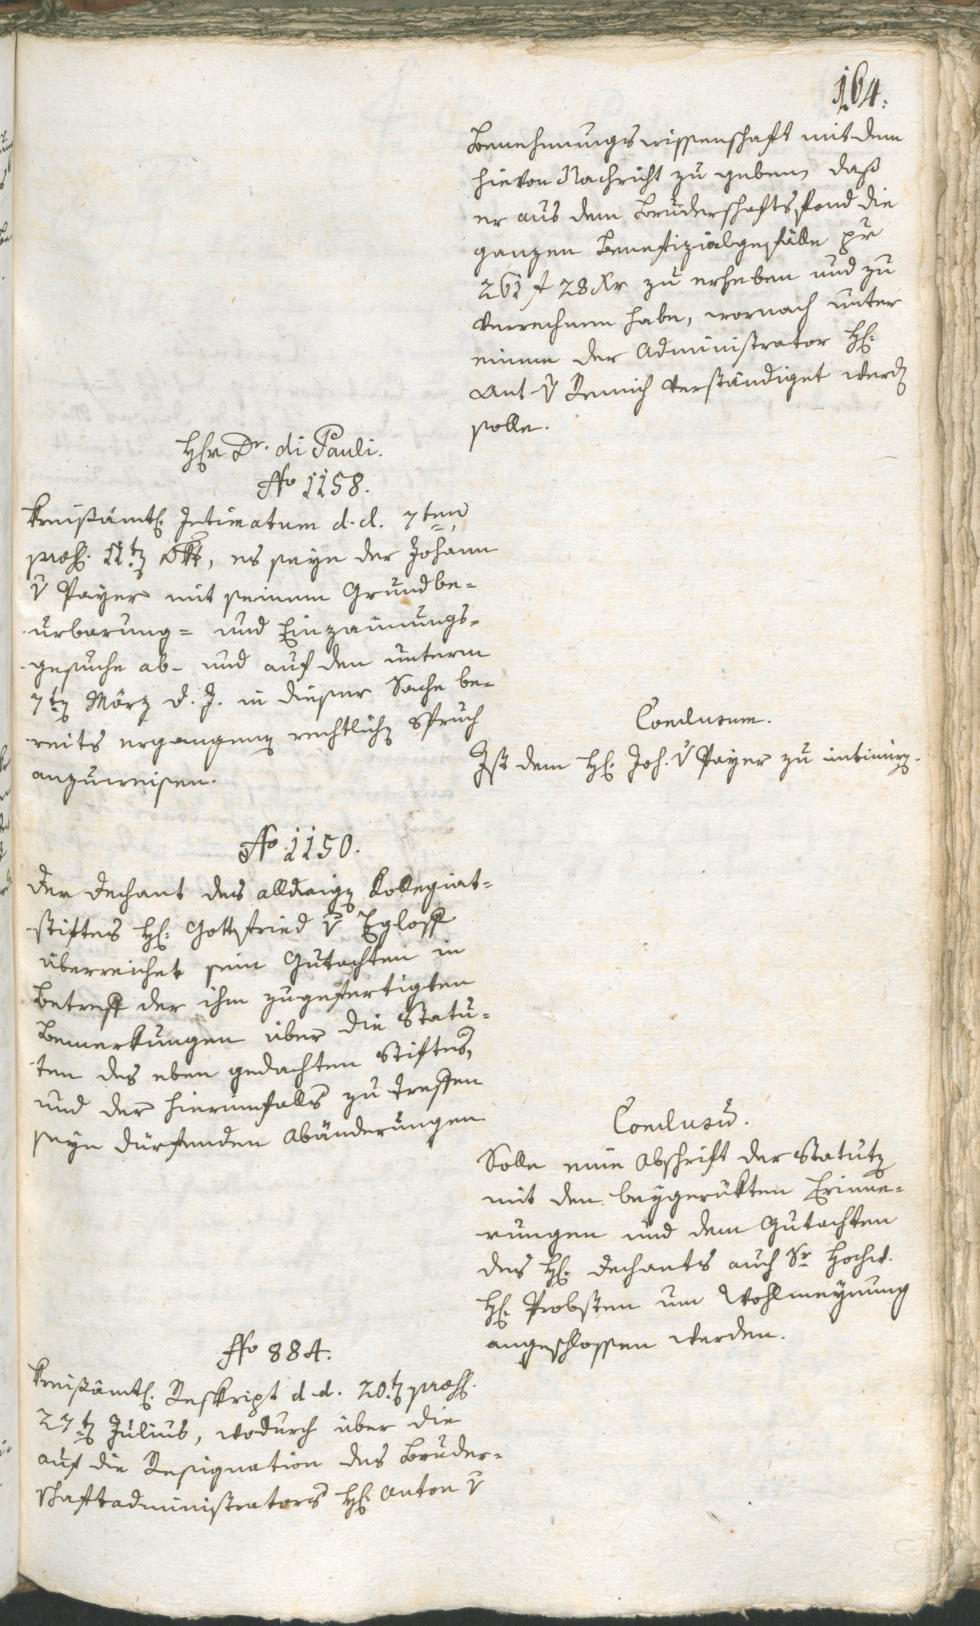 164.
Benehmungswissenschaft mit dem
hievon Nachricht zu geben, daß
er aus dem Bruderschaftsfond die
ganzen Benefizialgefälle pr
261 f 28 Kr zu erheben und zu
verrechnen habe, wornach unter
einem der Administrator H:
Ant. v Remich verständiget werdn
solle.
Hr Dr. di Pauli.
No 1158.
Kreisämtl. Intimatum d. d. 7ten
præs. 11tn Okt, es seye der Johann
v Payer mit seinem Grundbe=
urbarung= und Einzäunungs=
gesuche ab- und auf den unterm
7tn März d. J. in dieser Sache be=
reits ergangenen rechtlichn Spruch
anzuweisen.
Conclusum.
Ist dem H: Joh. v Payer zu intimirn.
No 1150.
Der Dechant des alldaign Kollegiat=
stiftes H: Gottfried v Egloff
überreichet sein Gutachten in
Betreff der ihm zugefertigten
Bemerkungen über die Statu=
ten des eben gedachten Stiftes,
und der hierinfalls zu treffen
seyn dürfenden Abänderungen
Conclusū.
Solle eine Abschrift der Statutn
mit den beygerükten Erinne=
rungen und dem Gutachten
des H: Dechants auch Sr Hochw.
H: Probsten um Wohlmeynung
angeschlossen werden.
No 884.
Kreisämtl. Reskript d. d. 20tn præs.
27tn Julius, wodurch über die
auf die Resignation des Bruder=
schaftadministrators H: Anton v